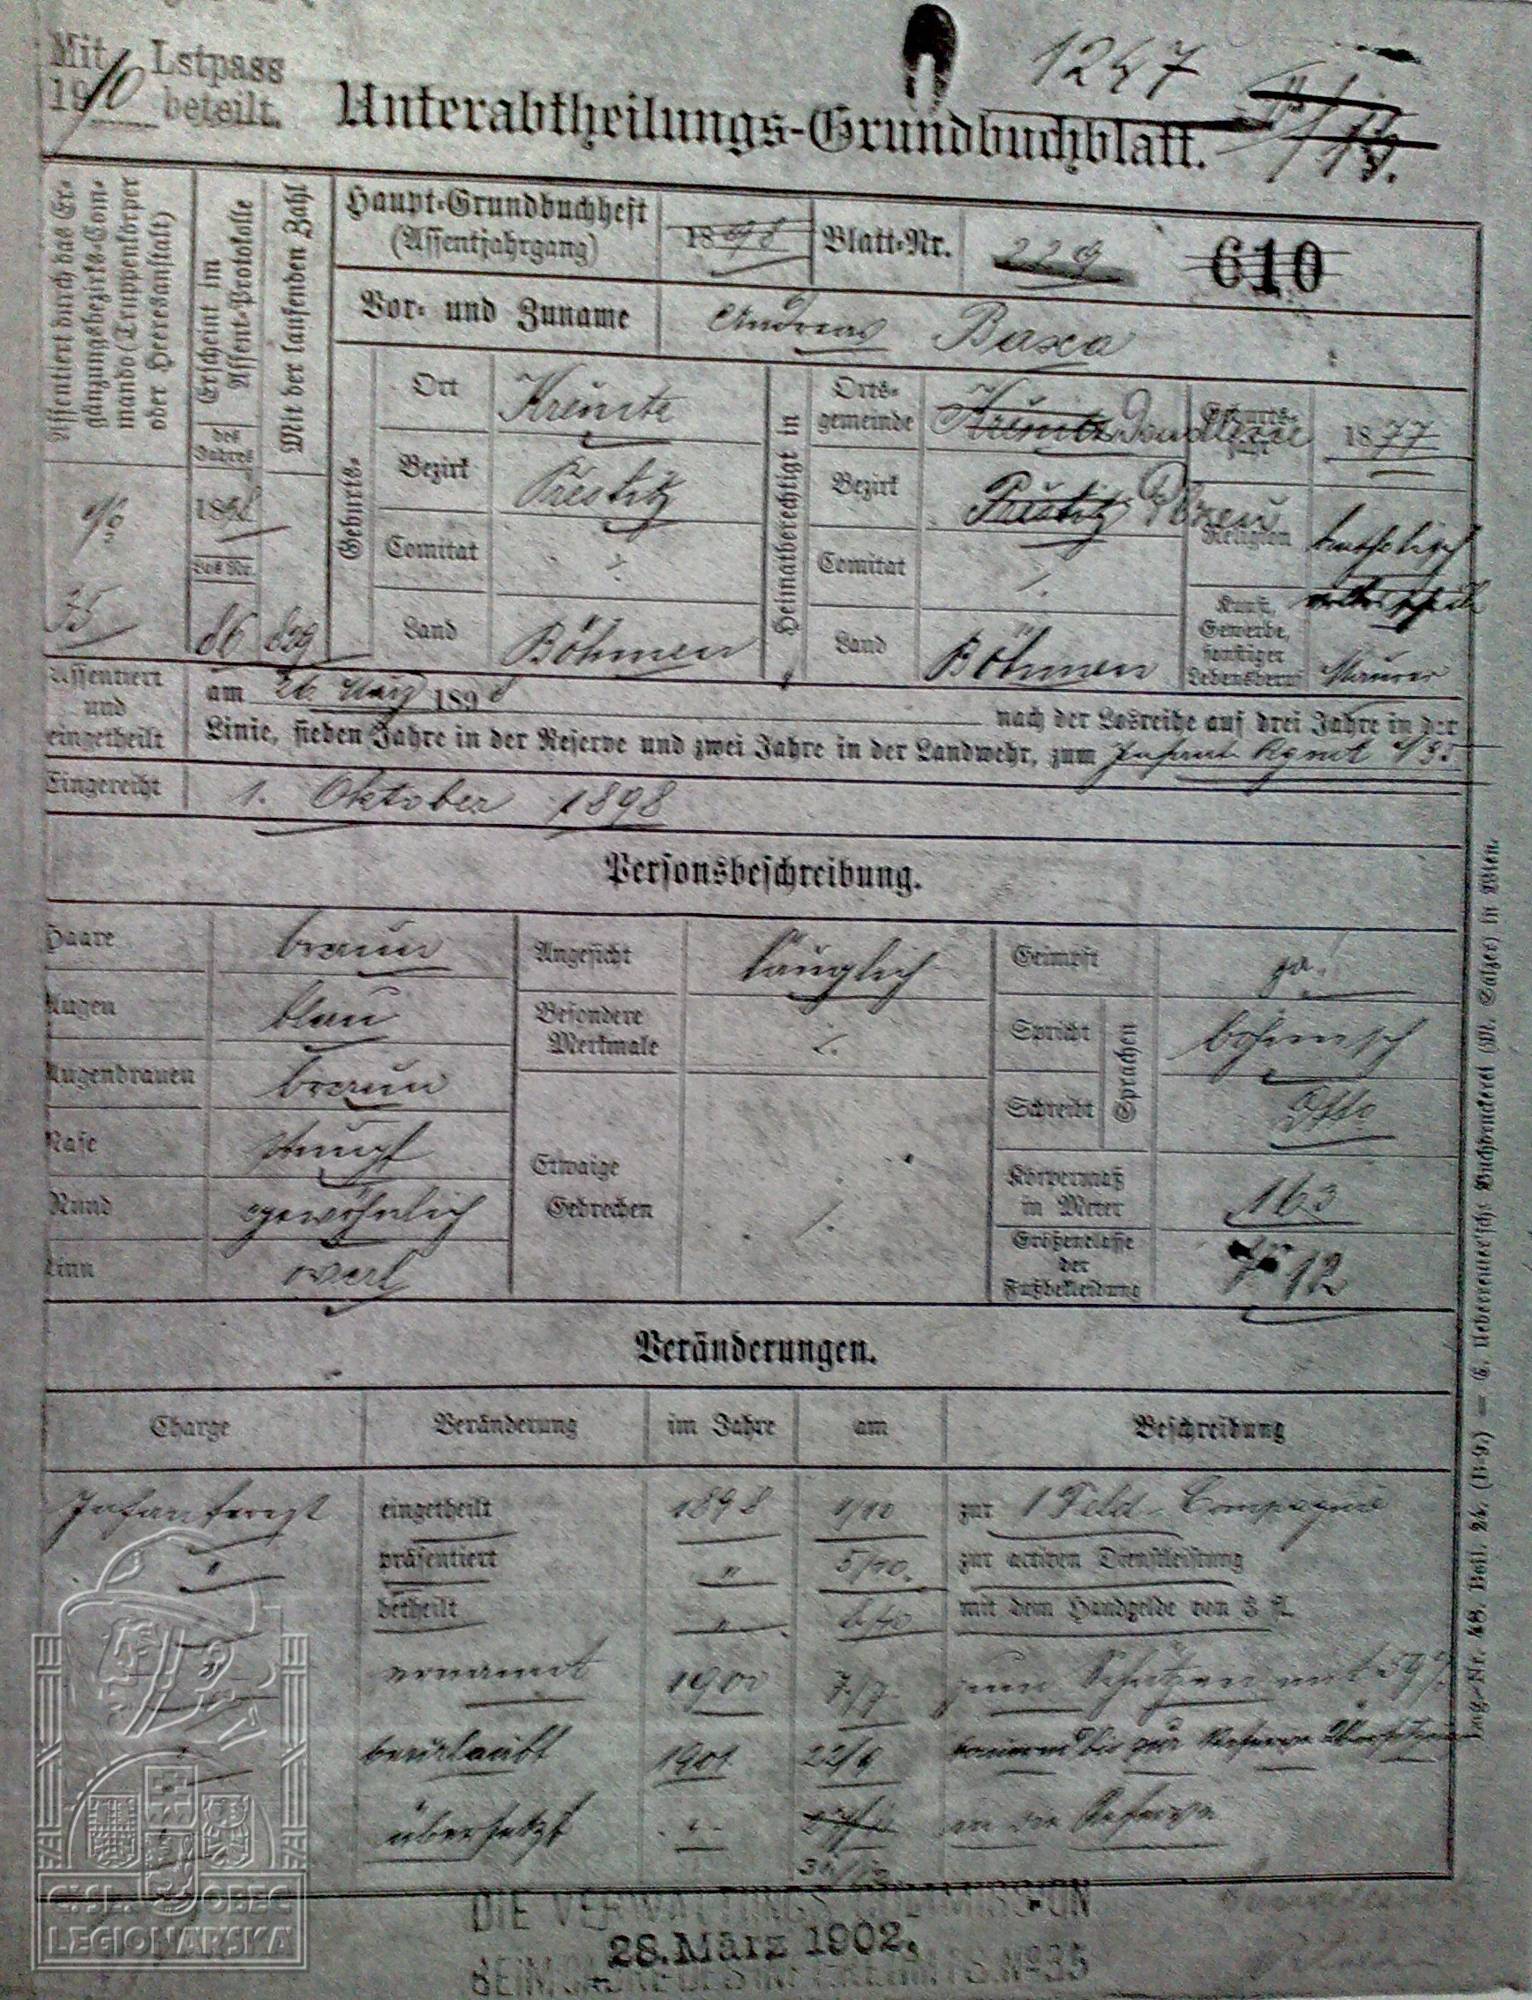 Mit Lstpass
1910 beteilt.
1247
Unterabtheilungs-Grundbuchblatt.
Assentiert durch das Ergänzungsbezirks-Commando (Truppenkörper oder Heeresanstalt)
Erscheint im Assent-Protokolle
des Jahres
1898
Los Nr.
86
Mit der laufenden Zahl
829
35
Haupt-Grundbuchheft
(Assentjahrgang)
1898
Blatt-Nr.
229
610
Vor- und Zuname
Andreas Baxa
Geburts-
Ort
Bezirk
Prestitz
Comitat
Land
Böhmen
Heimatberechtigt in
Ortsgemeinde
Bezirk
Prestitz Pilsen
Comitat
Land
Böhmen
Geburtsjahr
1877
Religion
katholisch
Kunst, Gewerbe, sonstiger Lebensberuf
Maurer
Assentiert und eingetheilt
am 26. März 1898 nach der Losreihe auf drei Jahre in der
Linie, sieben Jahre in der Reserve und zwei Jahre in der Landwehr, zum Infant. Rgmt
Eingereiht
1. Oktober 1898
Personsbeschreibung.
Haare braun
Augen blau
Augenbrauen braun
Nase stumpf
Mund gewöhnlich
Kinn oval
Angesicht länglich
Besondere Merkmale
Etwaige Gebrechen
Geimpft ja
Sprachen
Spricht böhmisch
Schreibt dtto
Körpermaß in Meter 163
Größenclasse der Fußbekleidung 12
Veränderungen.
Charge Veränderung im Jahre am Beschreibung
Infanterist eingetheilt 1898 1/10 zur 1 Feld-Compagnie
" präsentiert " 5/10. zur activen Dienstleistung
betheilt " 6/10 mit dem Handgelde von 3 fl.
" ernannt 1900 7/7. zum Schützen mit
" beurlaubt 1901. 22/9 dauernd bis zur Reserve Übersetzung
übersetzt " 31/12 in die Reserve
DIE VERWALTUNGS COMMISSION
28. März 1902.
No 35
C. Ueberreuter'sche Buchdruckerei (M. Salzer) in Wien.
C:SL. OBEC
LEGIONÁŘSKÁ